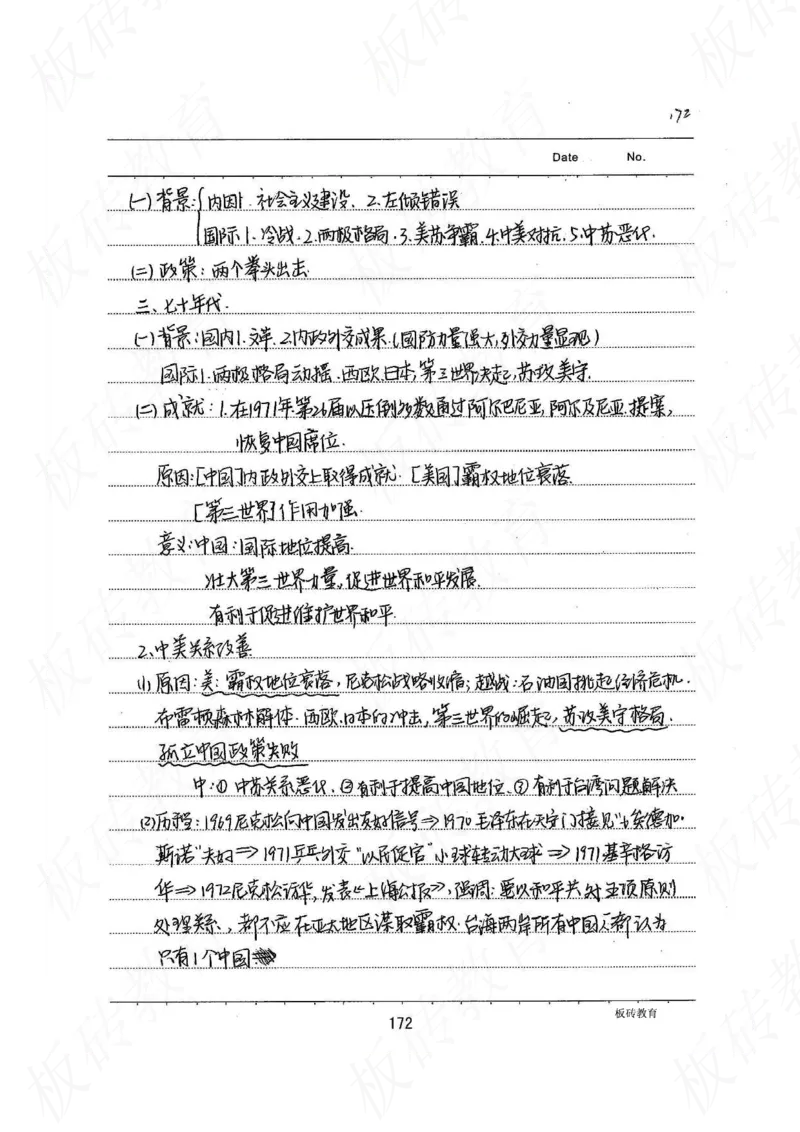 172
Date No.
(一)背景:{内因1.社会主义建设. 2.左倾错误
国际1.冷战.2.两极格局.3.美苏争霸.4.中美对抗.5.中苏恶化.
(二)政策:两个拳头出击.
三、七十年代.
(一)背景:国内1.文革.2.内政外交成果.(国防力量强大,外交力量显现)
国际1.两极格局动摇.西欧日本,第三世界崛起,苏攻美守.
(二)成就:1.在1971年第26届以压倒多数通过阿尔巴尼亚,阿尔及尼亚.提案,
恢复中国席位.
原因:[中国]内政外交上取得成就.[美国]霸权地位衰落
[第三世界]作用加强.
意义:中国:国际地位提高.
壮大第三世界力量,促进世界和平发展.
有利于促进维护世界和平.
2、中美关系改善
(1)原因:美:霸权地位衰落,尼克松战略收缩;越战:石油国挑起经济危机.
布雷顿森林解体.西欧.日本的冲击,第三世界的崛起,苏攻美守格局.
孤立中国政策失败
中:① 中苏关系恶化.②有利于提高中国地位.③有利于台湾问题解决
(2)历程:1969尼克松向中国发出友好信号⇒1970毛泽东在天安门接见"埃德加·
斯诺"夫妇⇒1971乒乓外交"以民促官"小球转动大球⇒1971基辛格访
华⇒1972尼克松访华,发表《上海公报》,强调:要以和平共处五项原则
处理关系、都不应在亚太地区谋取霸权.台海两岸所有中国人都认为
只有1个中国
172
板砖教育